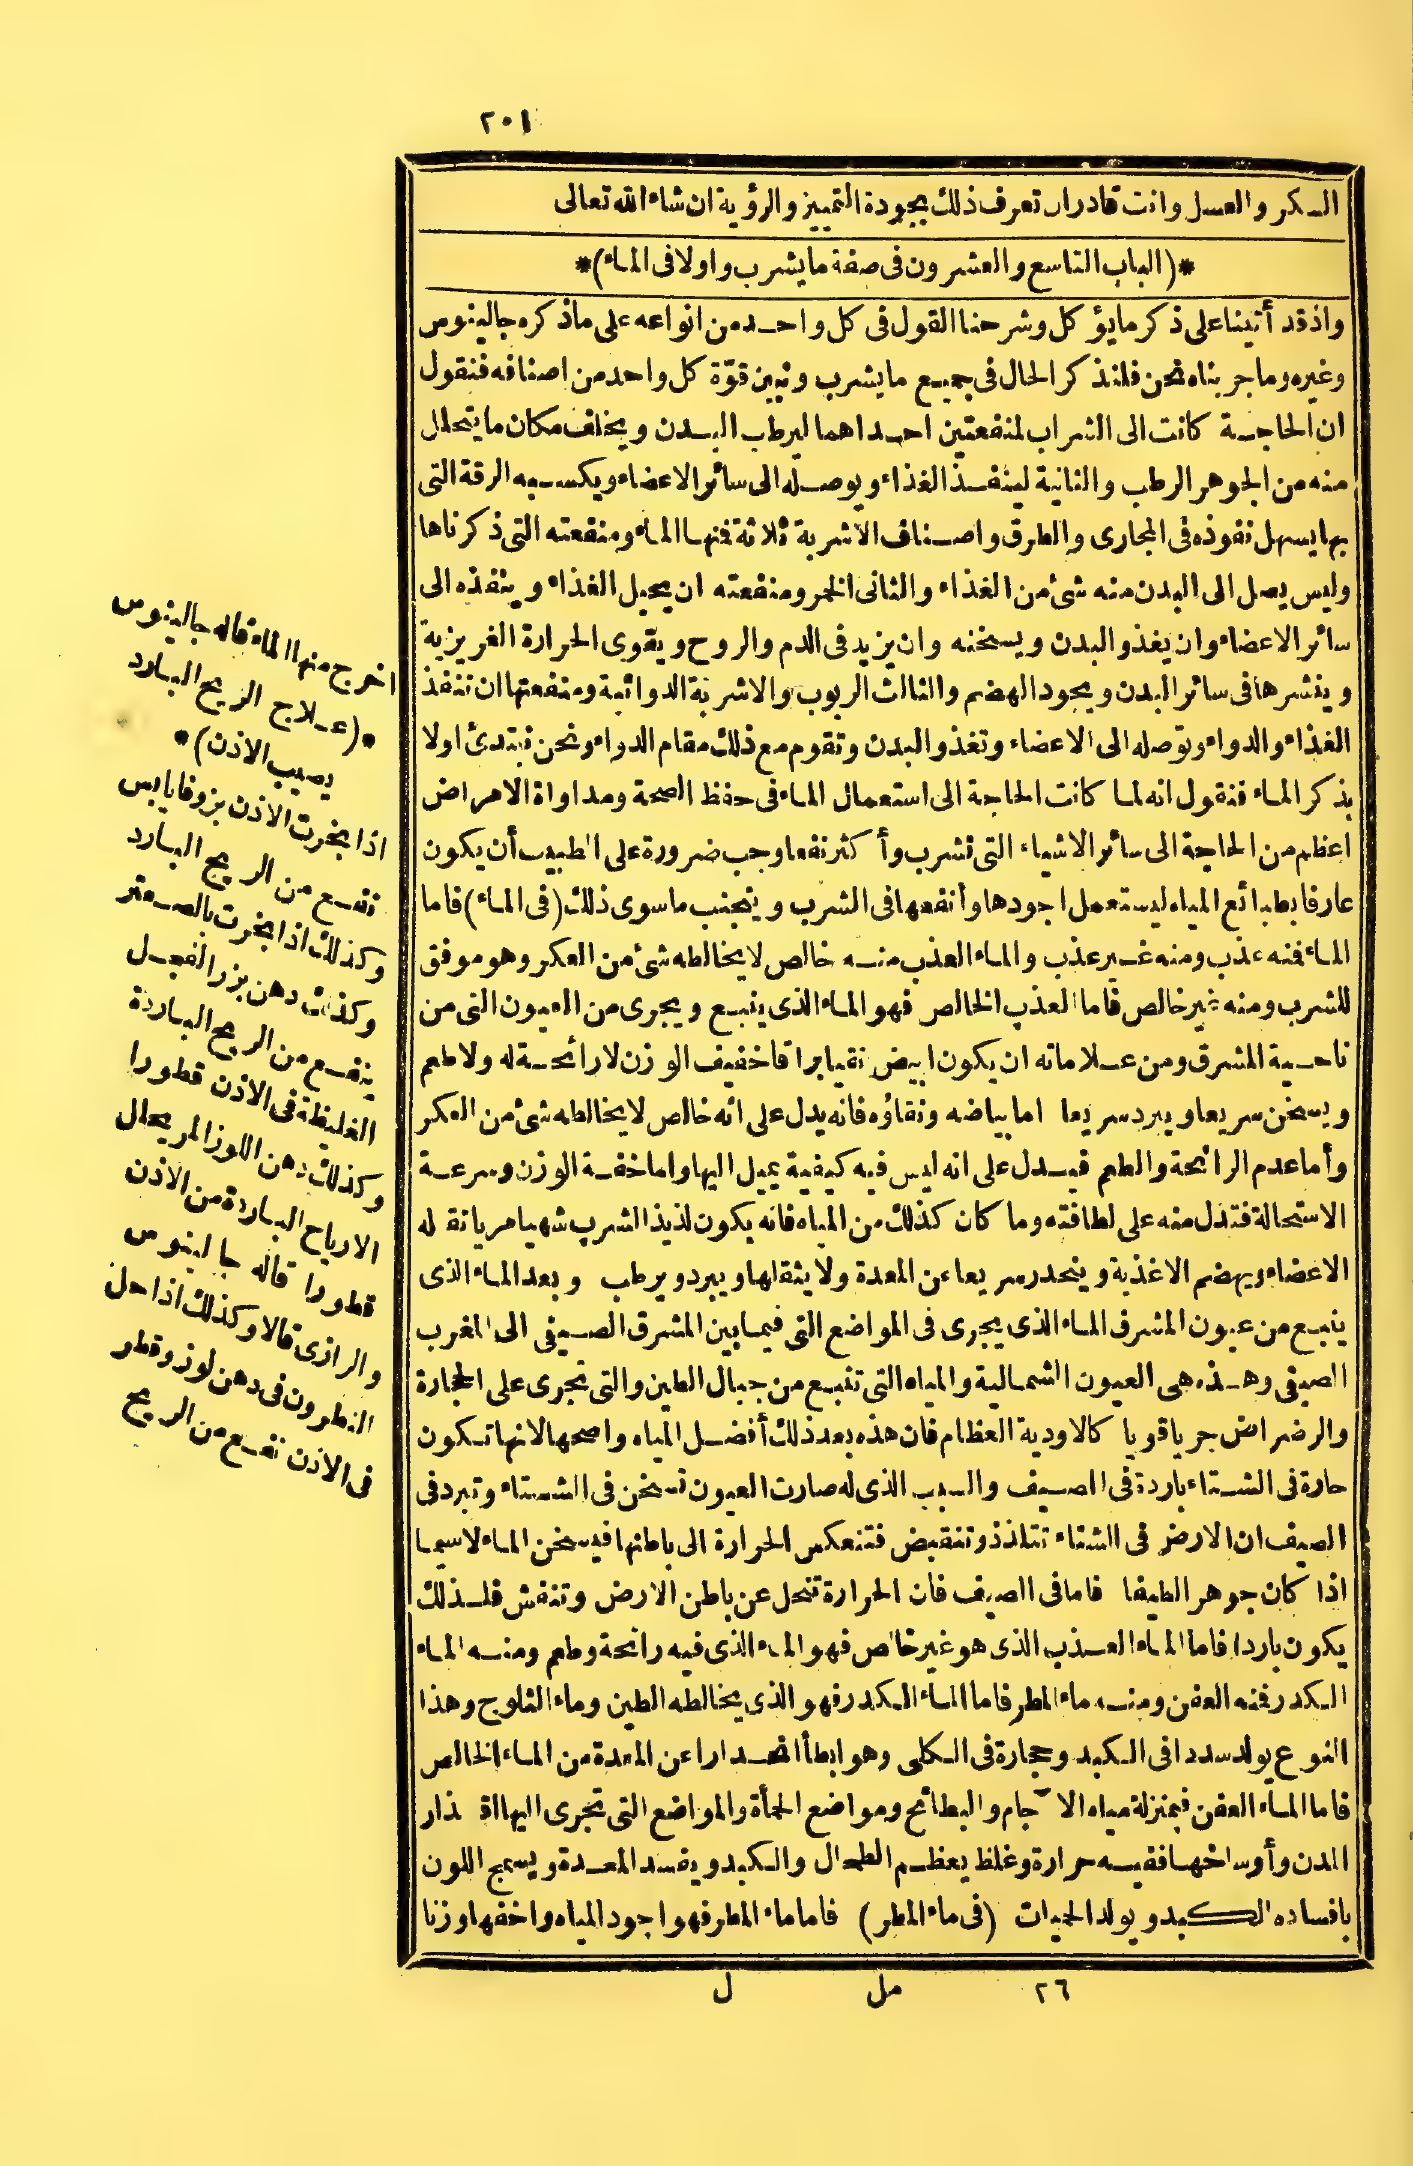 ٢٠١
السكر والعسل وانت قادر ان تعرف ذلك بجودة التمييز والرؤية ان شاء الله تعالى
*(الباب التاسع والعشرون فى صفة ما يشرب واولا فى الماء)*
واذ قد أتينا على ذكر ما يؤكل وشرحنا القول فى كل واحد من انواعه على ماذكره جالينوس
وغيره وما جربناه نحن فلنذكر الحال فى جميع ما يشرب ونبين قوّة كل واحد من اصنافه فنقول
ان الحاجة كانت الى الشراب لمنفعتين احداهما ليرطب البدن ويخلف مكان ما يتحلل
منه من الجوهر الرطب والثانية لينفذ الغذاء ويوصله الى سائر الاعضاء ويكسبه الرقة التى
بها يسهل نفوذه فى المجارى والطرق واصناف الاشربة ثلاثة فمنها الماء ومنفعته التى ذكرناها
وليس يصل الى البدن منه شئ من الغذاء والثانى الخمر ومنفعته ان يحيل الغذاء وينفذه الى
سائر الاعضاء وان يغذو البدن ويسخنه وان يزيد فى الدم والروح ويقوى الحرارة الغريزية
وينشرها فى سائر البدن ويجود الهضم والثالث الربوب والاشربة الدوائية ومنفعتها ان تنفذ
الغذاء والدواء وتوصله الى الاعضاء وتغذو البدن وتقوم مع ذلك مقام الدواء ونحن نبتدئ اولا
بذكر الماء فنقول انه لما كانت الحاجة الى استعمال الماء فى حفظ الصحة ومداواة الامراض
اعظم من الحاجة الى سائر الاشياء التى تشرب وأكثر نفعا وجب ضرورة على الطبيب أن يكون
عارفا بطبائع المياه ليستعمل اجودها وأنفعها فى الشرب ويتجنب ما سوى ذلك (فى الماء) فاما
الماء فمنه عذب ومنه غير عذب والماء العذب منه خالص لا يخالطه شئ من العكر وهو موفق
للشرب ومنه غير خالص فاما العذب الخالص فهو الماء الذى ينبع ويجرى من العيون التى من
ناحية المشرق ومن علاماته ان يكون ابيض نقيا براقا خفيف الوزن لا رائحة له ولا طعم
ويسخن سريعا ويبرد سريعا اما بياضه ونقاؤه فانه يدل على انه خالص لا يخالطه شئ من العكر
وأما عدم الرائحة والطعم فيدل على انه ليس فيه كيفية يميل اليها واما خفة الوزن وسرعة
الاستحالة فتدل منه على لطافته وما كان كذلك من المياه فانه يكون لذيذ الشرب شهيا مريا تقبله
الاعضاء ويهضم الاغذية وينحدر سريعا عن المعدة ولا يثقلها ويبرد ويرطب وبعد الماء الذى
ينبع من عيون المشرق الماء الذى يجرى فى المواضع التى فيما بين المشرق الصيفى الى المغرب
الصيفى وهذه هى العيون الشمالية والمياه التى تنبع من جبال الطين والتى تجرى على الحجارة
والرضراض جريا قويا كالاودية العظام فان هذه بعد ذلك أفضل المياه واصحها لانها تكون
حارة فى الشتاء باردة فى الصيف والسبب الذى له صارت العيون تسخن فى الشتاء وتبرد فى
الصيف ان الارض فى الشتاء تتلذذ وتنقبض فتنعكس الحرارة الى باطنها فيسخن الماء لا سيما
اذا كان جوهر الطيفا فاما فى الصيف فان الحرارة تنحل عن باطن الارض وتنفش فلذلك
يكون باردا فاما الماء العذب الذى هو غير خالص فهو الماء الذى فيه رائحة وطعم ومنه الماء
الكدر فمنه العفن ومنه ماء المطر فاما الماء الكدر فهو الذى يخالطه الطين وماء الثلوج وهذا
النوع يولد سددا فى الكبد وحجارة فى الكلى وهو ابطأ انحدارا عن المعدة من الماء الخالص
فاما الماء العفن فبمنزلة مياه الآجام والبطائح ومواضع الحمأة والمواضع التى تجرى اليها اقذار
المدن وأوساخها ففيه حرارة وغلظ يعظم الطحال والكبد ويفسد المعدة ويسمج اللون
بافساده الكبد ويولد الحميات (فى ماء المطر) فاما ماء المطر فهو اجود المياه واخفها وزنا
٢٦ مل ل
اخرج منها الماء قاله جالينوس
*(علاج الريح البارد
يصيب الاذن)*
اذا بخرت الاذن بزوفا يابس
نفع من الريح البارد
وكذلك اذا بخرت بالصعتر
وكذلك دهن بزر الفجل
ينفع من الريح الباردة
الغليظة فى الاذن قطورا
وكذلك دهن اللوز المر يحلل
الارياح الباردة من الاذن
قطورا قاله جالينوس
والرازى قالا وكذلك اذا حل
النطرون فى دهن لوز وقطر
فى الاذن نفع من الريح